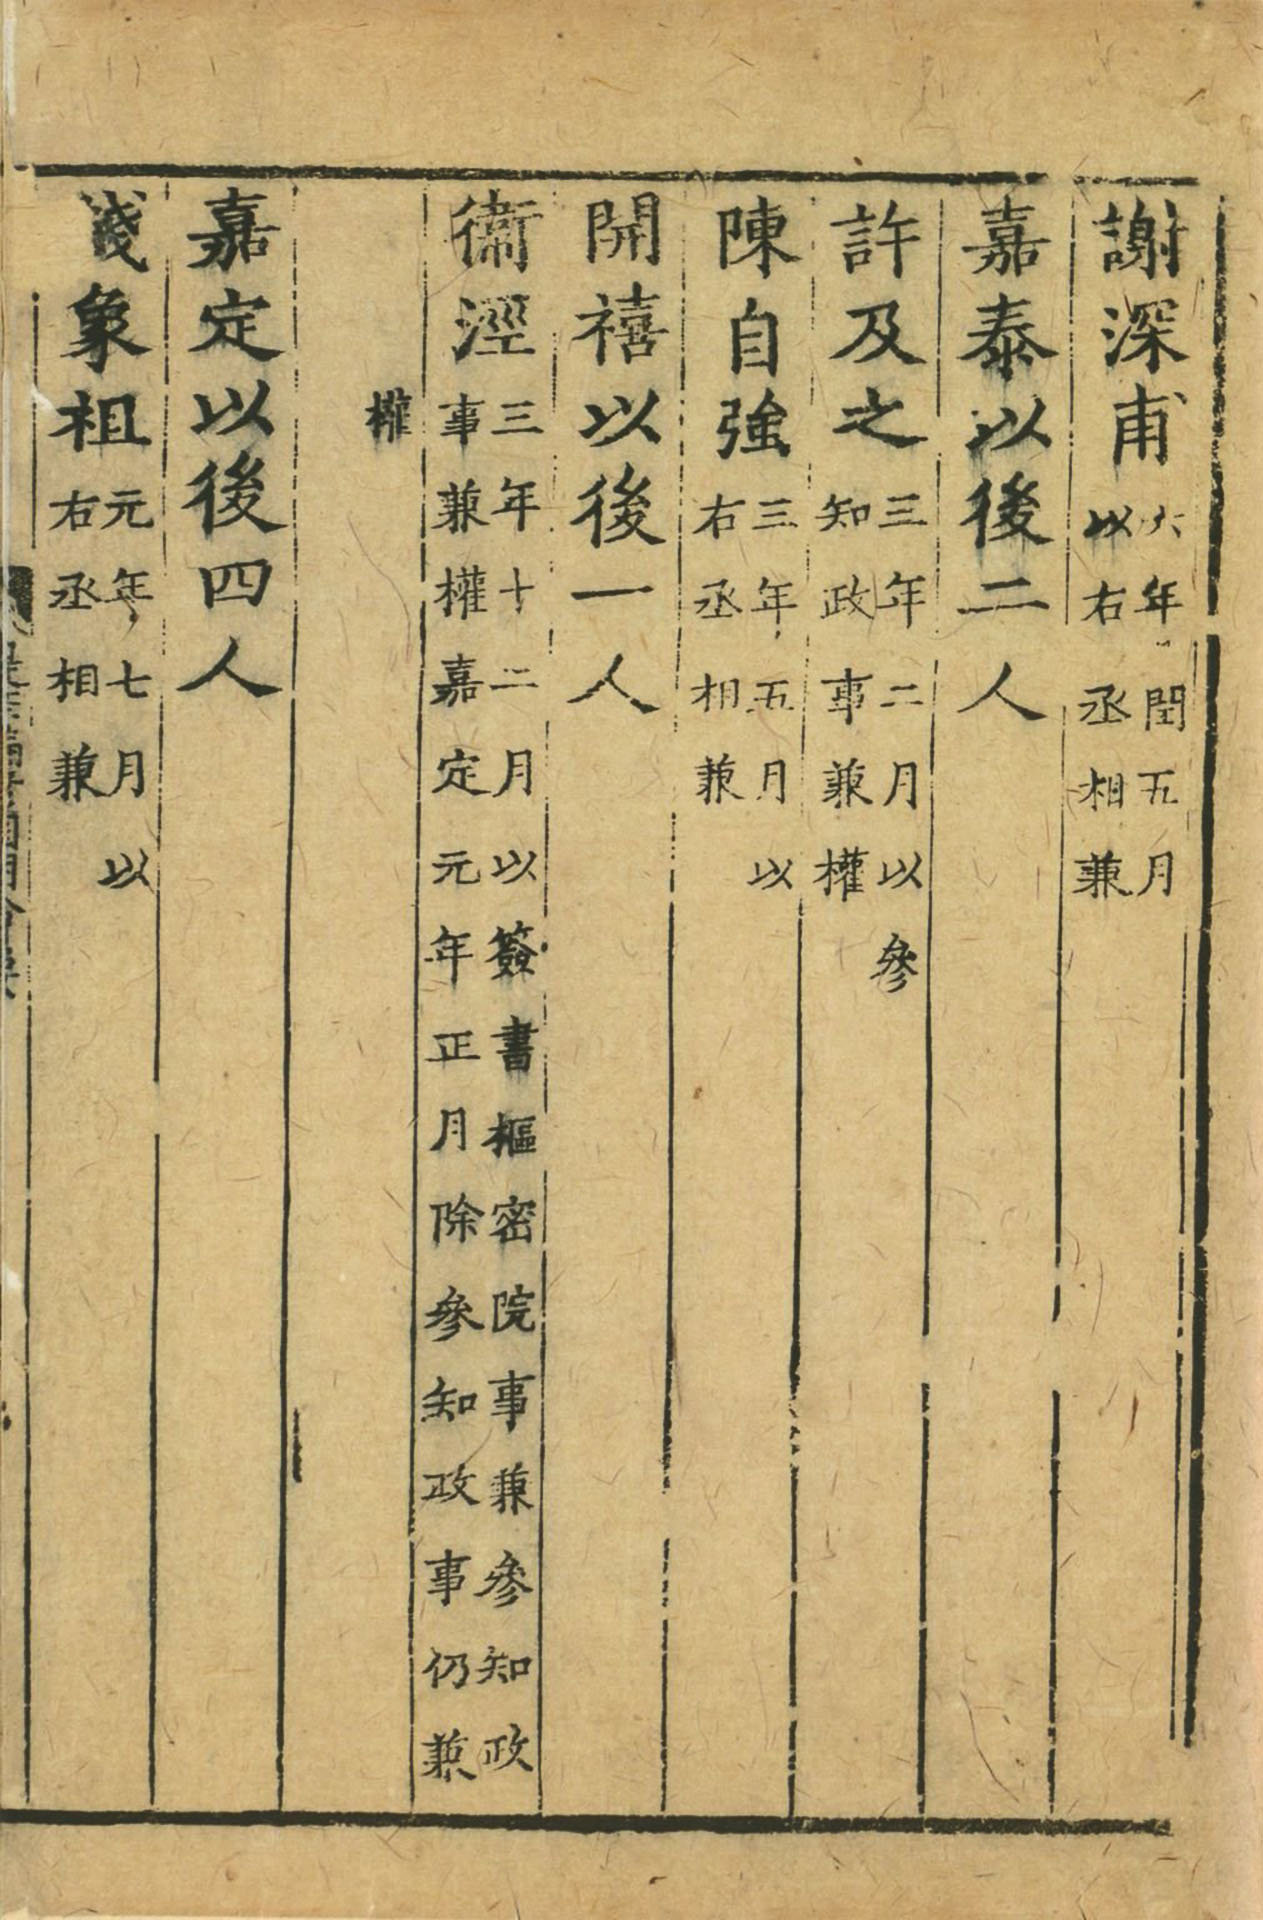 謝深甫六年閏五月以右丞相兼
嘉泰以後二人
許及之三年二月以參知政事兼權
陳自強三年五月以右丞相兼
開禧以後一人
衞涇三年十二月以簽書樞密院事兼參知政事兼權嘉定元年正月除參知政事仍兼
權
嘉定以後四人
象祖元年七月以右丞相兼